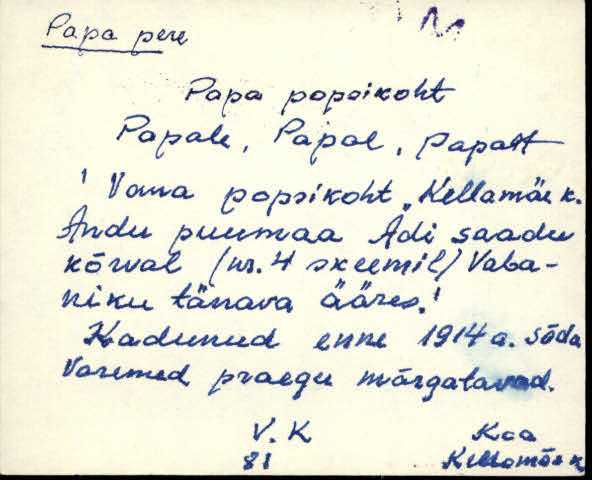 Papa pere
Papa popsikoht
Papale, Papal, Papalt
' Vana popsikoht „Kellamäe k.
Andu puumaa Ädi saadu
kõrval (nr. 4 skeemil) Vaba-
niku tänava ääres.'
Kadunud enne 1914 a. sõda
Varemed praegu märgatavad.
V. K Kaa
81 Kellamäe k